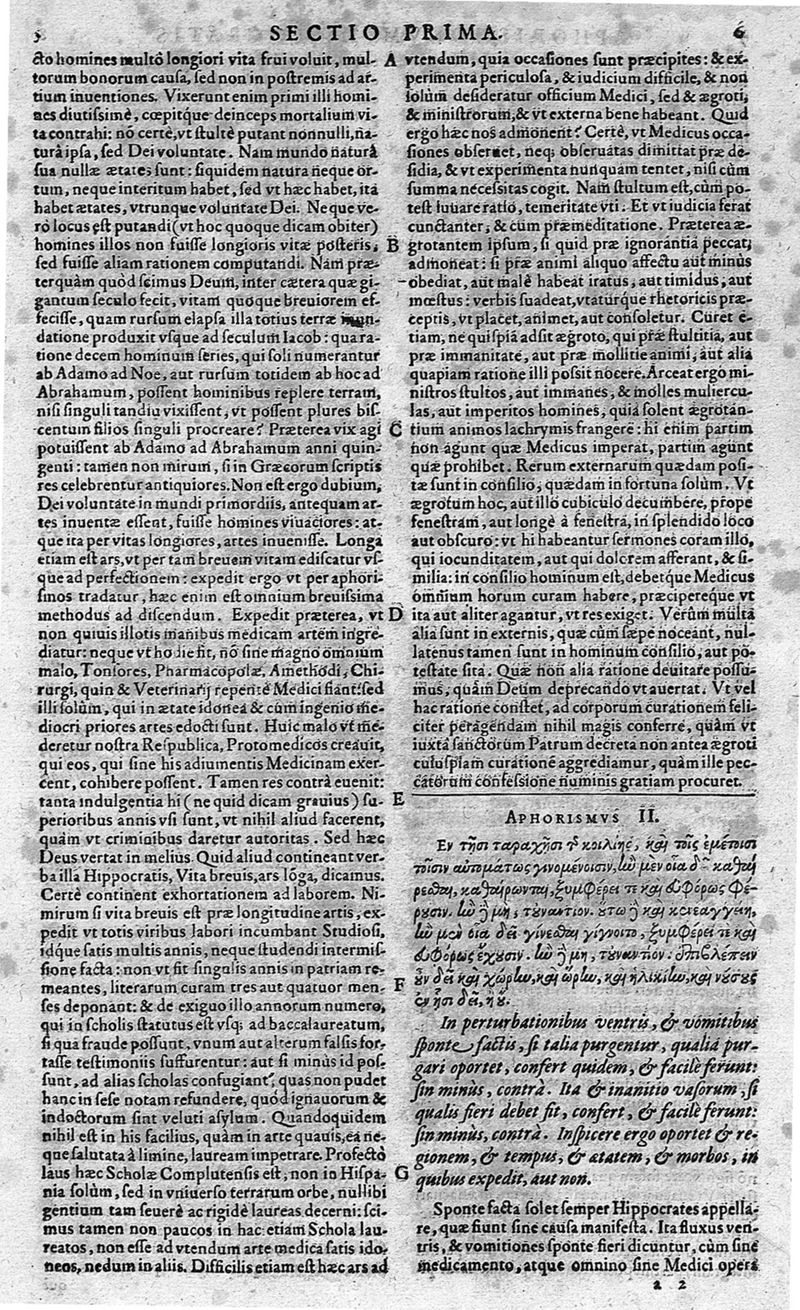 5
SECTIO PRIMA.
6
cto homines multò longiori vita frui voluit, mul-
torum bonorum causa, sed non in postremis ad ar-
tium inuentiones. Vixerunt enim primi illi homi-
nes diutissimè, cœpitque deinceps mortalium vi-
ta contrahi: nõ certè, vt stultè putant nonnulli, na-
tura ipsa, sed Dei voluntate. Nam mundo natura
sua nullæ ætates sunt: siquidem natura neque or-
tum, neque interitum habet, sed vt hæc habet, ita
habet ætates, vtrunque voluntate Dei. Neque ve-
rò locus est putandi (vt hoc quoque dicam obiter)
homines illos non fuisse longioris vitæ posteris,
sed fuisse aliam rationem computandi. Nam præ-
terquàm quòd scimus Deum, inter cætera quæ gi-
gantum seculo fecit, vitam quoque breuiorem ef-
fecisse, quam rursum elapsa illa totius terræ inun-
datione produxit vsque ad seculum Iacob: qua ra-
tione decem hominum series, qui soli numerantur
ab Adamo ad Noe, aut rursum totidem ab hoc ad
Abrahamum, possent hominibus replere terram,
nisi singuli tandiu vixissent, vt possent plures bis-
centum filios singuli procreare? Præterea vix agi
potuissent ab Adamo ad Abrahamum anni quin-
genti: tamen non mirum, si in Græcorum scriptis
res celebrentur antiquiores. Non est ergo dubium,
Dei voluntate in mundi primordiis, antequam ar-
tes inuentæ essent, fuisse homines viuaciores: at-
que ita per vitas longiores, artes inuenisse. Longa
etiam est ars, vt per tam breuem vitam ediscatur vs-
que ad perfectionem: expedit ergo vt per aphori-
smos tradatur, hæc enim est omnium breuissima
methodus ad discendum. Expedit præterea, vt
non quiuis illotis manibus medicam artem ingre-
diatur: neque vt hodie fit, nõ sine magno omnium
malo, Tonsores, Pharmacopolæ, Amethodi, Chi-
rurgi, quin & Veterinarij repentè Medici fiant: sed
illi solùm, qui in ætate idonea & cùm ingenio me-
diocri priores artes edocti sunt. Huic malo vt me-
deretur nostra Respublica, Protomedicos creauit,
qui eos, qui sine his adiumentis Medicinam exer-
cent, cohibere possent. Tamen res contrà euenit:
tanta indulgentia hi (ne quid dicam grauius) su-
perioribus annis vsi sunt, vt nihil aliud facerent,
quàm vt criminibus daretur autoritas. Sed hæc
Deus vertat in melius. Quid aliud contineant ver-
ba illa Hippocratis, Vita breuis, ars lõga, dicamus.
Certè continent exhortationem ad laborem. Ni-
mirum si vita breuis est præ longitudine artis, ex-
pedit vt totis viribus labori incumbant Studiosi,
idque satis multis annis, neque studendi intermis-
sione facta: non vt fit singulis annis in patriam re-
meantes, literarum curam tres aut quatuor men-
ses deponant: & de exiguo illo annorum numero,
qui in scholis statutus est vsq; ad baccalaureatum,
si qua fraude possunt, vnum aut alterum falsis for-
tasse testimoniis suffurentur: aut si minùs id pos-
sunt, ad alias scholas confugiant, quas non pudet
hanc in sese notam refundere, quòd ignauorum &
indoctorum sint veluti asylum. Quandoquidem
nihil est in his facilius, quàm in arte quauis, ea ne-
que salutata à limine, lauream impetrare. Profectò
laus hæc Scholæ Complutensis est, non in Hispa-
nia solùm, sed in vniuerso terrarum orbe, nullibi
gentium tam seuerè ac rigidè laureas decerni: sci-
mus tamen non paucos in hac etiam Schola lau-
reatos, non esse ad vtendum arte medica satis ido-
neos, nedum in aliis. Difficilis etiam est hæc ars ad
A
B
C
D
E
F
G
vtendum, quia occasiones sunt præcipites: & ex-
perimenta periculosa, & iudicium difficile, & non
solùm desideratur officium Medici, sed & ægroti,
& ministrorum, & vt externa bene habeant. Quid
ergo hæc nos admonent? Certè, vt Medicus occa-
siones obseruet, neq; obseruatas dimittat præ de-
sidia, & vt experimenta nunquam tentet, nisi cùm
summa necessitas cogit. Nam stultum est, cùm po-
test iuuare ratio, temeritate vti. Et vt iudicia ferat
cunctanter, & cùm præmeditatione. Præterea æ-
grotantem ipsum, si quid præ ignorantia peccat,
admoneat: si præ animi aliquo affectu aut minùs
obediat, aut malè habeat iratus, aut timidus, aut
mœstus: verbis suadeat, vtaturque rhetoricis præ-
ceptis, vt placet, animet, aut consoletur. Curet e-
tiam, ne quispiã adsit ægroto, qui præ stultitia, aut
præ immanitate, aut præ mollitie animi, aut alia
quapiam ratione illi possit nocere. Arceat ergo mi-
nistros stultos, aut immanes, & molles muliercu-
las, aut imperitos homines, quia solent ægrotan-
tium animos lachrymis frangere: hi enim partim
non agunt quæ Medicus imperat, partim agunt
quæ prohibet. Rerum externarum quædam posi-
tæ sunt in consilio, quædam in fortuna solùm. Vt
ægrotum hoc, aut illo cubiculo decumbere, prope
fenestram, aut longè à fenestra, in splendido loco
aut obscuro: vt hi habeantur sermones coram illo,
qui iocunditatem, aut qui dolorem afferant, & si-
milia: in consilio hominum est, debetque Medicus
omnium horum curam habere, præcipereque vt
ita aut aliter agantur, vt res exiget. Verùm multa
alia sunt in externis, quæ cùm sæpe noceant, nul-
latenus tamen sunt in hominum consilio, aut po-
testate sita. Quæ non alia ratione deuitare possu-
mus, quàm Deum deprecando vt auertat. Vt vel
hac ratione constet, ad corporum curationem feli-
citer peragendam nihil magis conferre, quàm vt
iuxta sanctorum Patrum decreta non antea ægroti
cuiuspiam curationẽ aggrediamur, quàm ille pec-
catorum confessione numinis gratiam procuret.
APHORISMVS II.
Ἐν τῇσι ταραχῇσι τῆς κοιλίης, καὶ τοῖς ἐμέτοισι
τοῖσιν αὐτομάτως γινομένοισιν, ἢν μὲν οἷα δεῖ καθαί
ρεσθαι, καθαίρωνται, ξυμφέρει τε καὶ εὐφόρως φέ-
ρουσιν. ἢν δὲ μὴ, τοὐναντίον. οὕτω δὲ καὶ κενεαγγείη,
ἢν μὲν οἷα δεῖ γίνεσθαι γίγνοιτο, ξυμφέρει τε καὶ
εὐφόρως ἔχουσιν. ἢν δὲ μὴ, τοὐναντίον. ἐπιβλέπειν
οὖν δεῖ καὶ χώρην, καὶ ὥρην, καὶ ἡλικίην, καὶ νούσους
ἐν ᾗσι δεῖ, ἢ οὔ.
In perturbationibus ventris, & vomitibus
sponte factis, si talia purgentur, qualia pur-
gari oportet, confert quidem, & facilè ferunt:
sin minùs, contrà. Ita & inanitio vasorum, si
qualis fieri debet fit, confert, & facilè ferunt:
sin minùs, contrà. Inspicere ergo oportet & re-
gionem, & tempus, & ætatem, & morbos, in
quibus expedit, aut non.
Sponte facta solet semper Hippocrates appella-
re, quæ fiunt sine causa manifesta. Ita fluxus ven-
tris, & vomitiones sponte fieri dicuntur, cùm sine
medicamento, atque omnino sine Medici opera
a 2